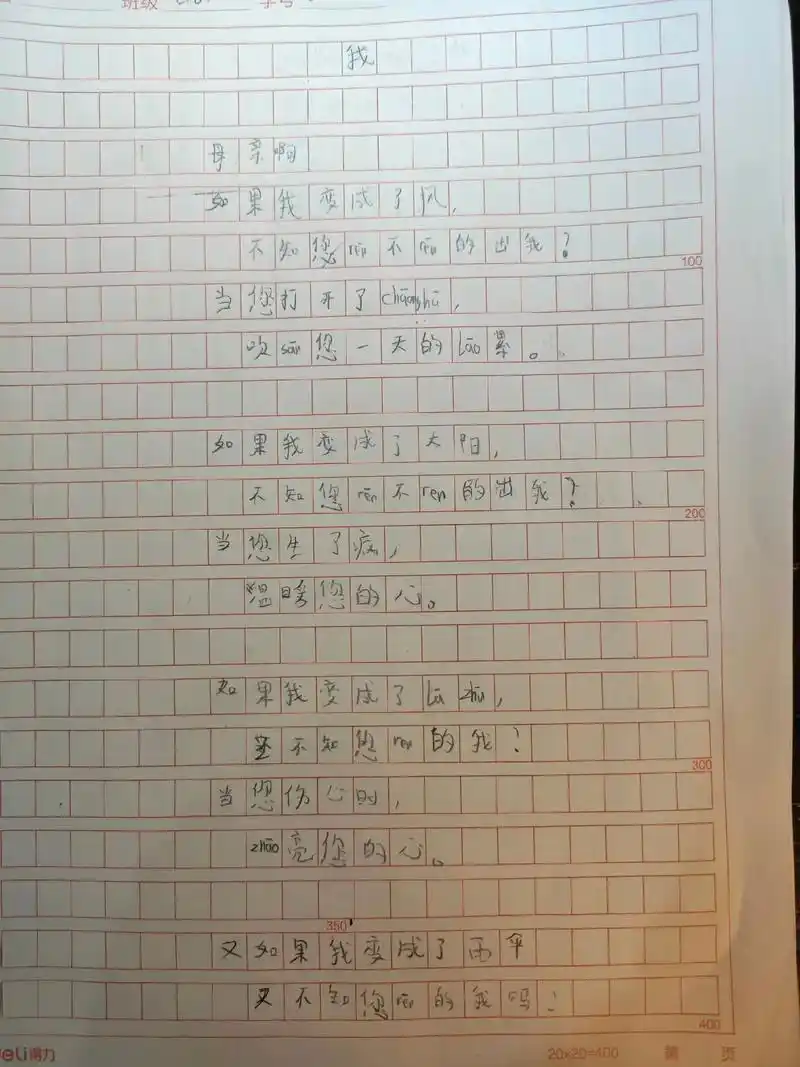 班级 学号
我
母亲啊
如果我变成了风,
不知您rèn不rèn的出我?
100
当您打开了chuānghù,
吹sàn您一天的láo累。
如果我变成了太阳,
不知您rèn不rèn的出我?
200
当您生了病,
温暖您的心。
如果我变成了là zhú,
不知您rèn的我?
300
当您伤心时,
zhào亮您的心。
350
又如果我变成了雨伞
又不知您rèn的我吗?
400
deli得力 20×20=400 第 页